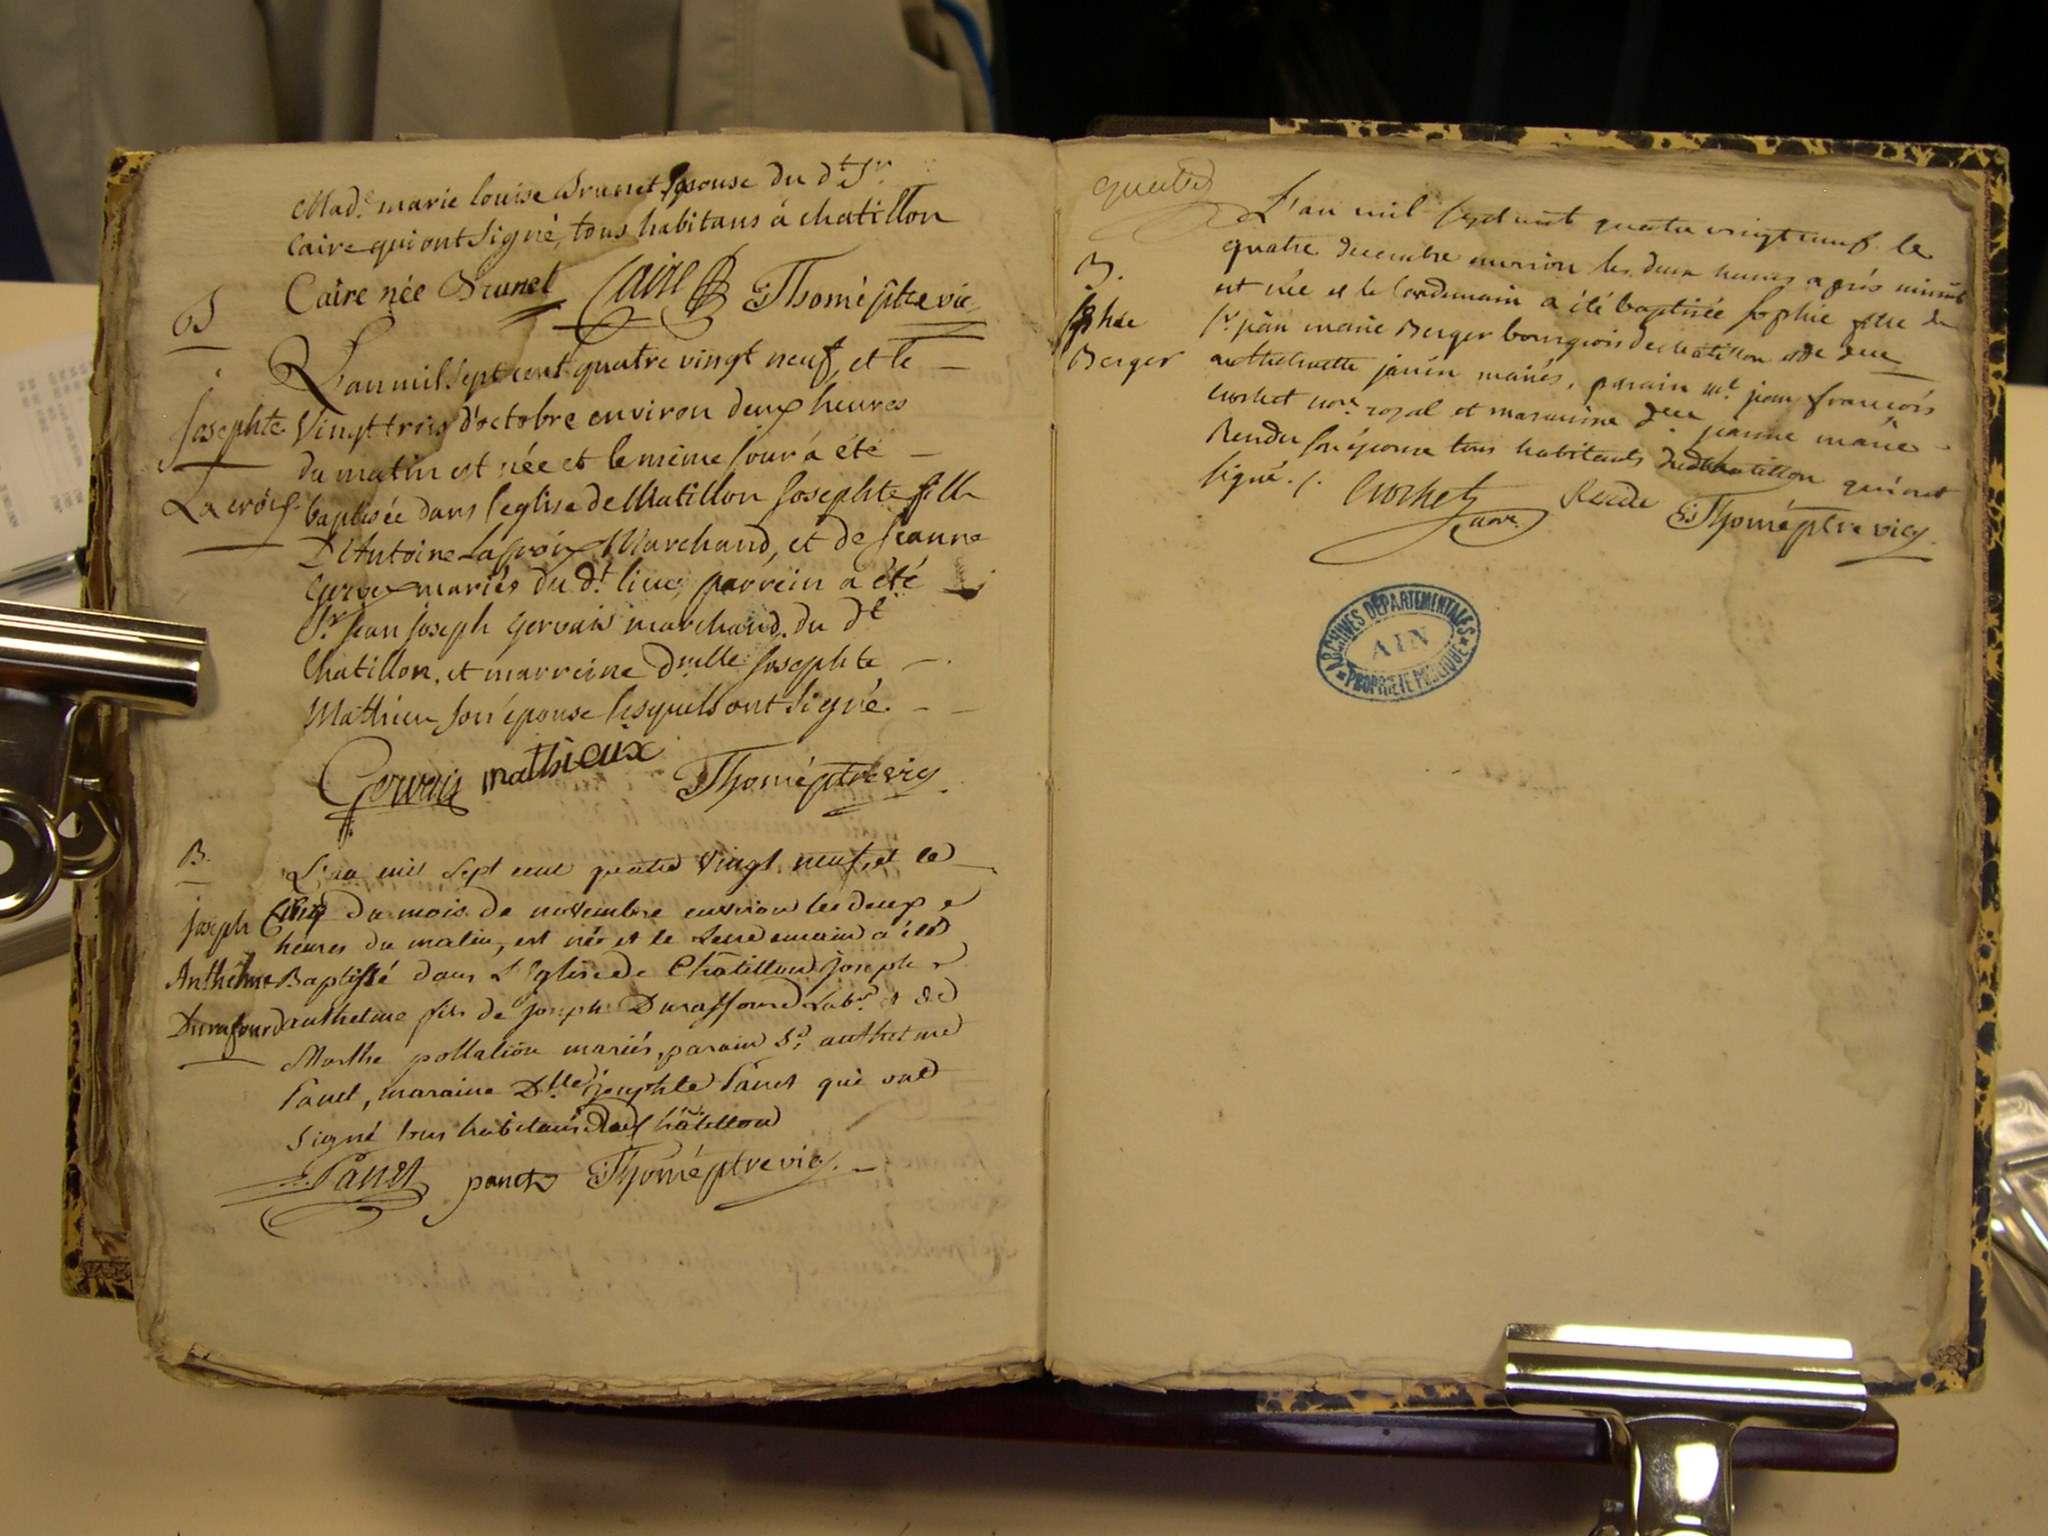 Mad.e marie louise Brunet Epouse du dt Sr
Caire qui ont signé, tous habitans à chatillon
Caire née Brunet Caire Thomé ptre vic
B
Josephte
La croix
L'an mil sept cent quatre vingt neuf, et le
Vingt trois d'octobre environ deux heures
du matin est née et le même jour à été
baptisée dans l'eglise de Chatillon Josephte fille
D'Antoine Lacroix Marchand, et de Jeanne
mariés du dt lieu, parrein a été
Sr Jean Joseph Gervais marchand du dt
Chatillon, et marreine dmlle Josephte
Mathieu son épouse lesquels ont signé.
Gervais mathieux Thomé ptre vic
B.
joseph
Anthelme
Durafourd
L'an mil sept cent quatre vingt neuf, et le
cinq du mois de novembre environ les deux
heures du matin, est né et le lendemain a été
Baptisé dans L'Eglise de Châtillon joseph
anthelme fils de joseph Duraffourd Labr et de
Marthe pollalion mariés, parain Sr anthelme
Panet, maraine Dlle josephte Panet qui ont
signé tous habitans de Châtillon
Panet panet Thomé ptre vic.
quatre
B.
sophie
Berger
L'an mil sept cent quatre vingt neuf le
quatre decembre environ les deux heures après minuit
est née et le lendemain a été baptisée Sophie fille de
Sr jean marie Berger bourgeois de chatillon et de dme
anthelmette janin mariés, parain mt jean françois
Crochet nore royal et maraine dme jeanne marie
Rendu son épouse tous habitants dudt chatillon qui ont
signé ./. Crochet nore. Rendu Thomé ptre vic.
ARCHIVES DÉPARTEMENTALES
AIN
PROPRIÉTÉ PUBLIQUE